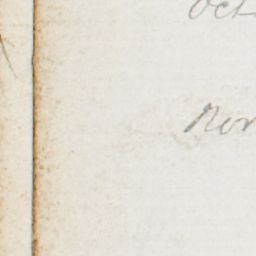 Oct
Nov